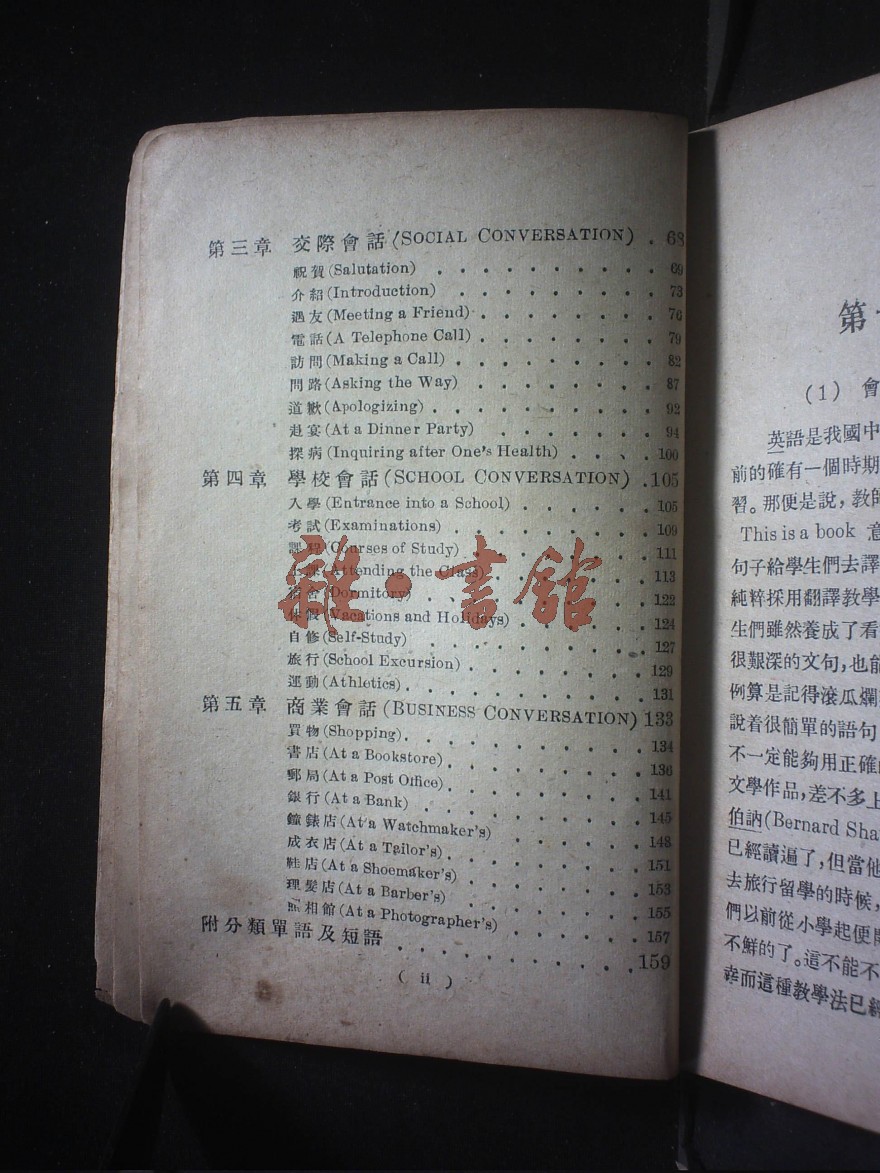 第三章 交際會話(SOCIAL CONVERSATION) . 68
祝賀(Salutation) . . . . . . . . . 69
介紹(Introduction) . . . . . . . . 73
遇友(Meeting a Friend) . . . . . . . 76
電話(A Telephone Call) . . . . . . . 79
訪問(Making a Call) . . . . . . . . 82
問路(Asking the Way) . . . . . . . 87
道歉(Apologizing) . . . . . . . . . 92
赴宴(At a Dinner Party) . . . . . . . 94
探病(Inquiring after One's Health) . . . . 100
第四章 學校會話(SCHOOL CONVERSATION) .105
入學(Entrance into a School) . . . . . . 105
考試(Examinations) . . . . . . . . 109
課程(Courses of Study) . . . . . . . 111
(Attending the Class) . . . . . . . 113
宿舍(Dormitory) . . . . . . . . . 122
休假(Vacations and Holidays) . . . . . 124
自修(Self-Study) . . . . . . . . . 127
旅行(School Excursion) . . . . . . . 129
運動(Athletics) . . . . . . . . . 131
第五章 商業會話(BUSINESS CONVERSATION) 133
買物(Shopping) . . . . . . . . . 134
書店(At a Bookstore) . . . . . . . 136
郵局(At a Post Office) . . . . . . . 141
銀行(At a Bank) . . . . . . . . . 145
鐘錶店(At a Watchmaker's) . . . . . . 148
成衣店(At a Tailor's) . . . . . . . . 151
鞋店(At a Shoemaker's) . . . . . . . 153
理髮店(At a Barber's) . . . . . . . 155
照相館(At a Photographer's) . . . . . . 157
附分類單語及短語 . . . . . . . . . 159
( ii )
雜·書館
第
(1) 會
英語是我國中
前的確有一個時期
習。那便是說，教師
This is a book 意
句子給學生們去譯
純粹採用翻譯教學
生們雖然養成了看
很艱深的文句，也能
例算是記得滾瓜爛
說着很簡單的語句
不一定能夠用正確的
文學作品，差不多上
伯訥(Bernard Sha
已經讀遍了，但當他
去旅行留學的時候，
們以前從小學起便開
不鮮的了。這不能不
幸而這種教學法已經